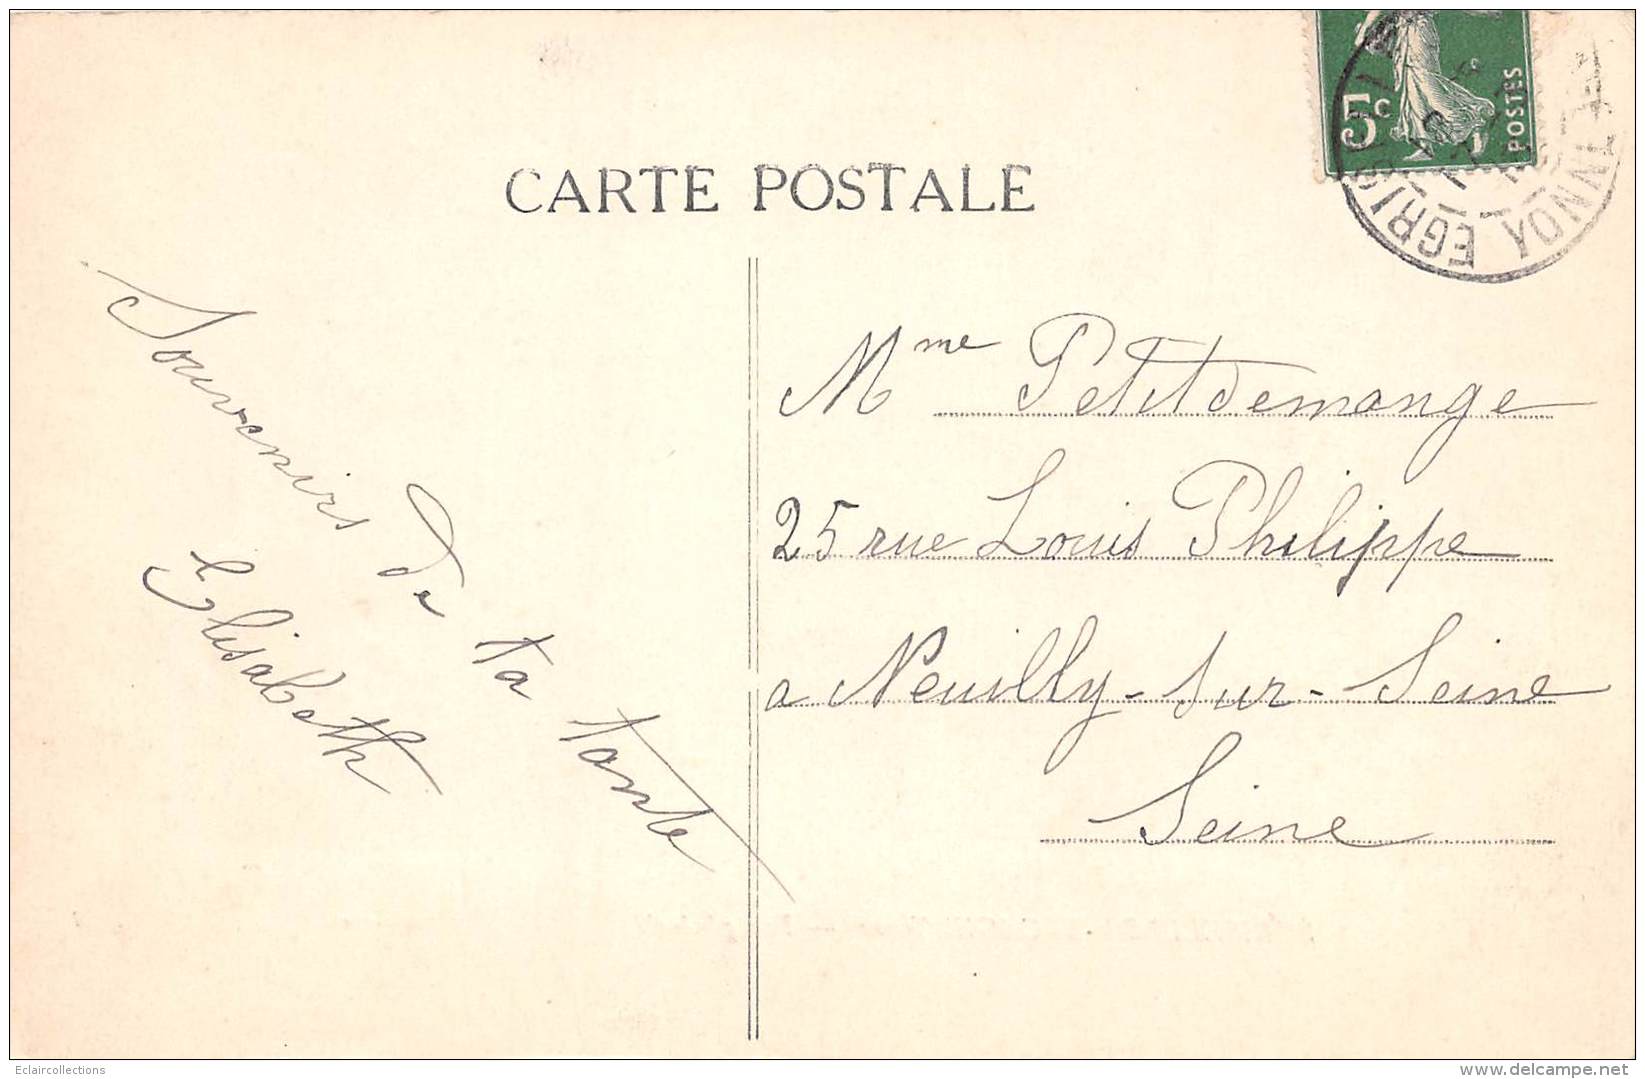 CARTE POSTALE
5c
POSTES
YONNE
Souvenirs de ta tante
Elisabeth
Mme Petitdemange
25 rue Louis Philippe
a Neuilly-sur-Seine
Seine
Eclaircollections
www.delcampe.net